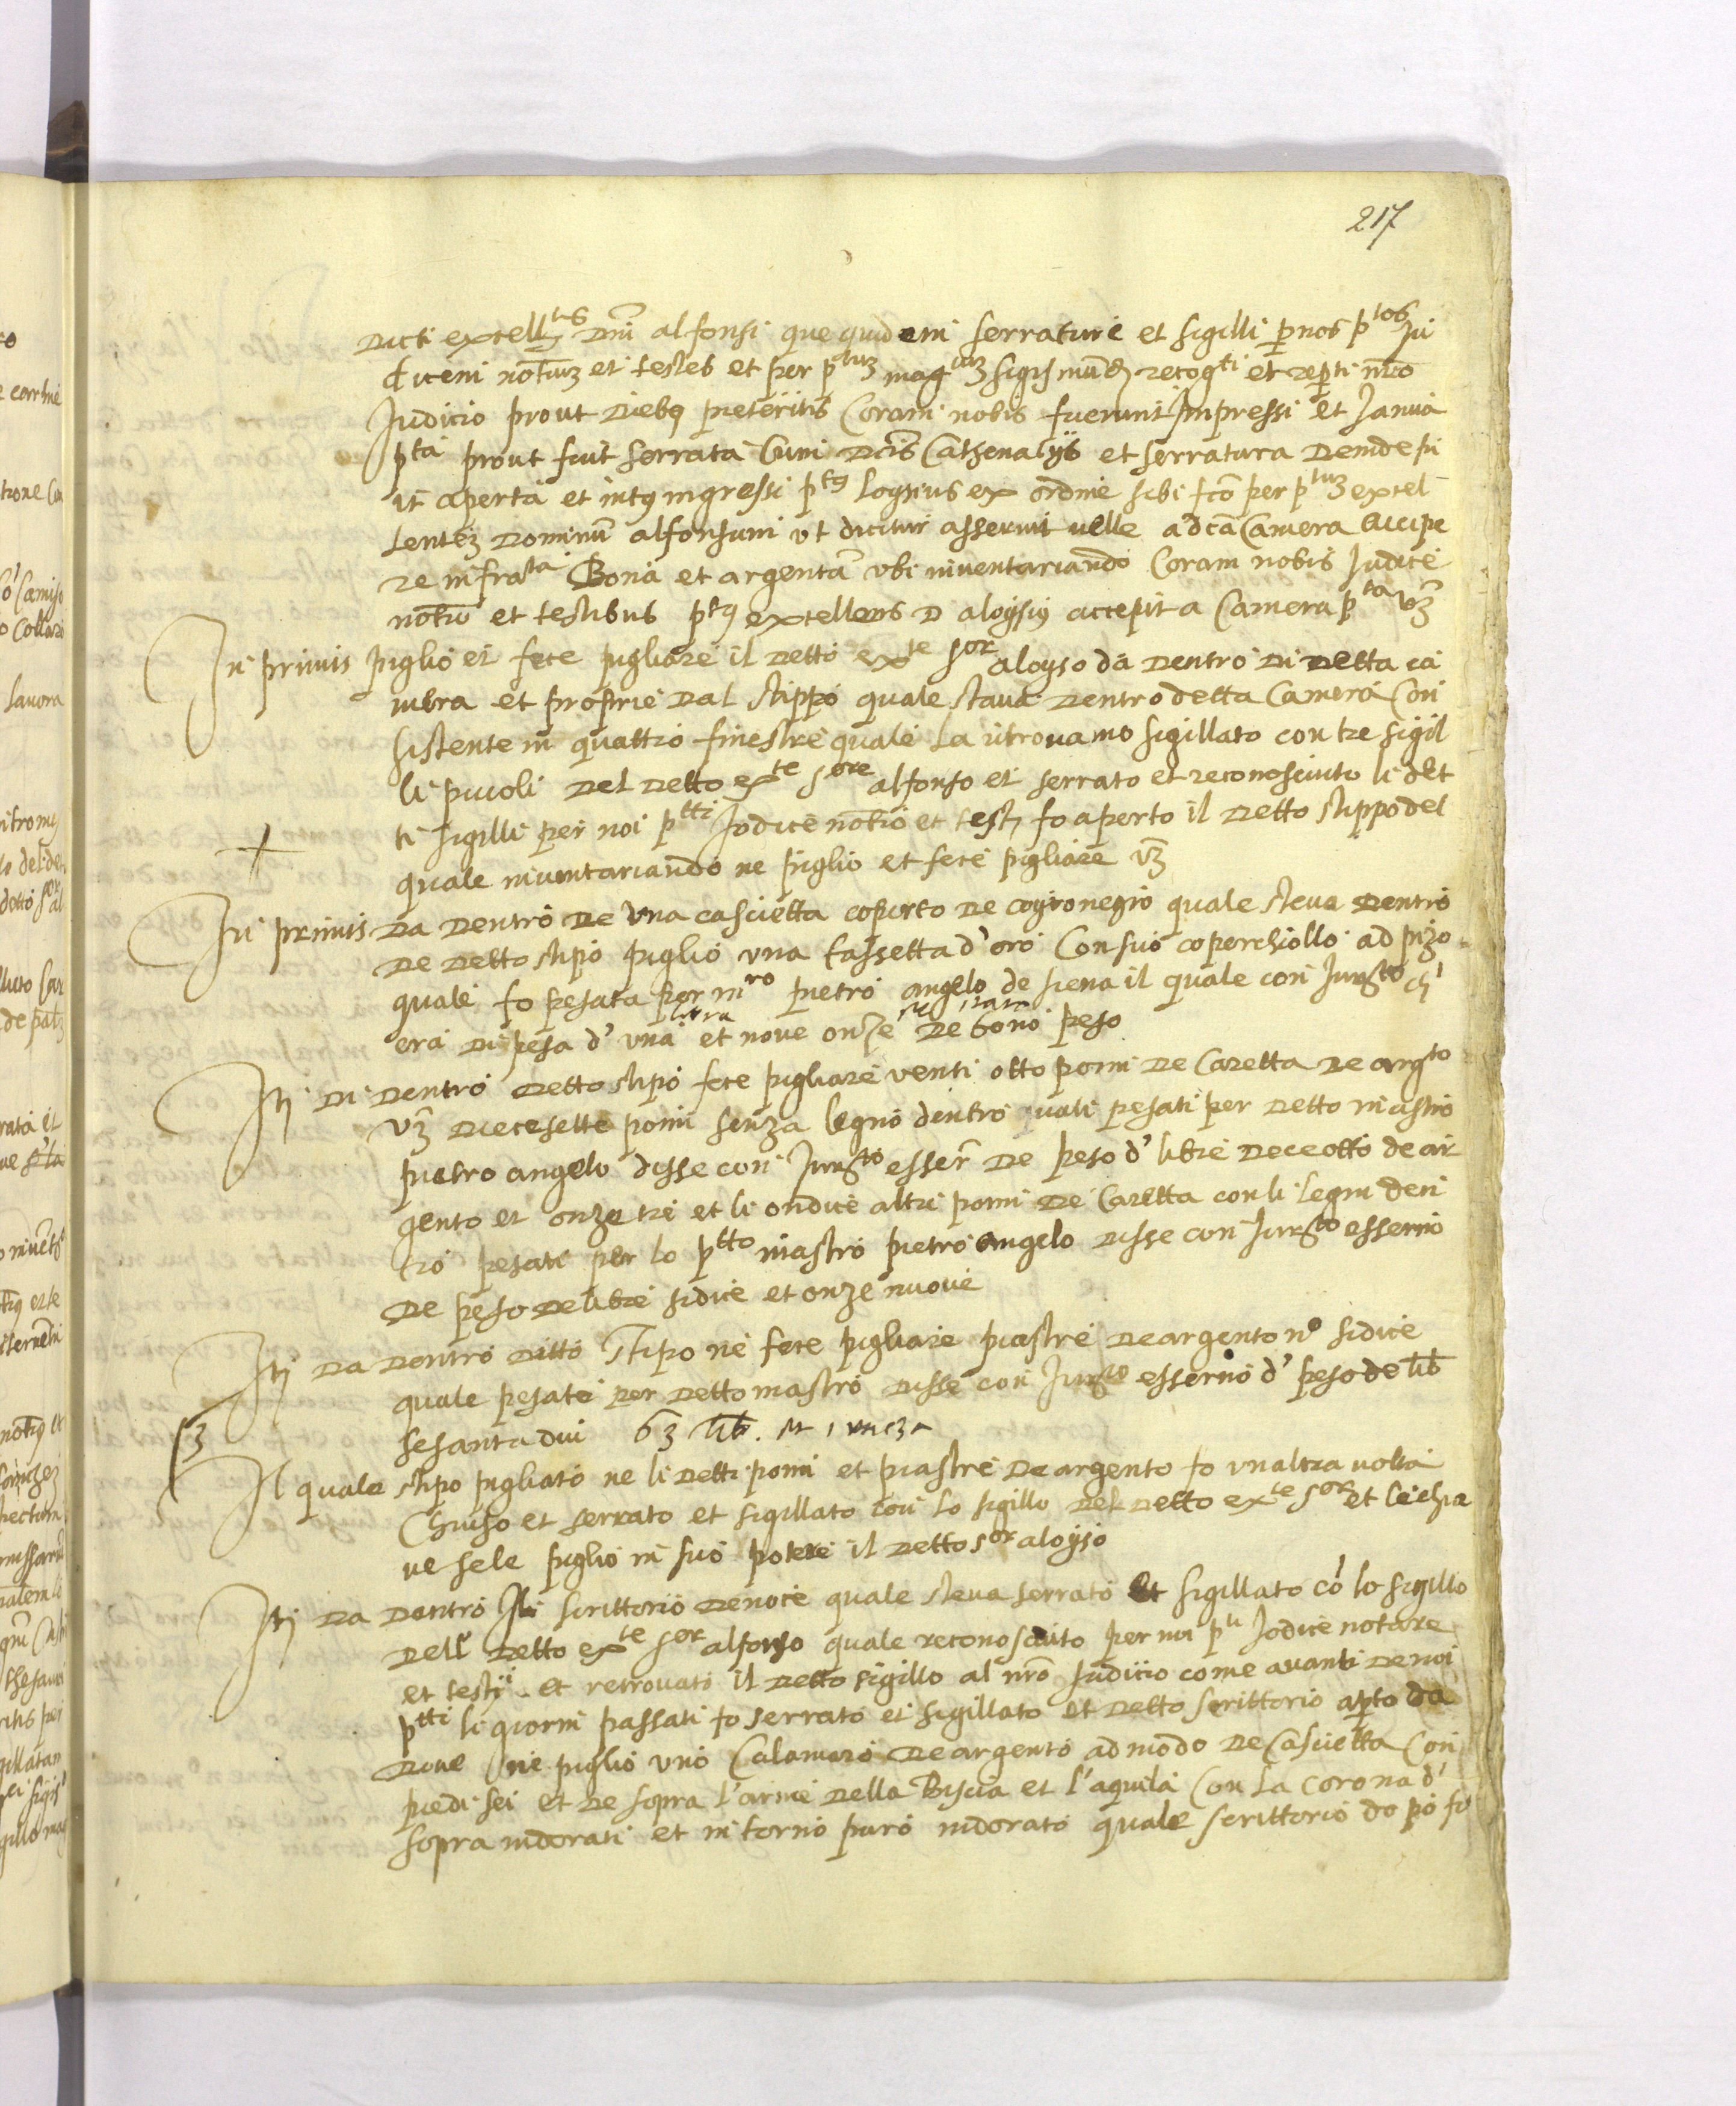 217
Dicti excell^tis Dñi alfonsi que quidem serrature et sigilli p nos p^tos Ju
dicem notiuz et testes et per p^tuz mag^cuz sigismundz recog^ti et reperti nr̃o
Judicio prout Diebz preteritis Coram nobis fuerunt Impressi et Janua
p^ta prout fuit serrata Cum Dictis Cathenacijs et serratura Deinde fu
it aperta et intus ingressi p^tus loysius ex ordine sibi fc̃o per p^tuz excel
lentez Dominũ alfonsum ut dicitur asseruit uelle a dc̃a Camera accipe
re infra^ta Bona et argenta ubi inventariando Coram nobis Judice
notr̃io et testibus p^tus excellens D aloysius accepit a Camera p^ta vz
In primis piglio et fece pigliare il Detto ex^te s^or aloyso da Dentro Di Detta ca
mera et proprie Dal stippo quale staua Dentro detta Camera Con
sistente in quattro finestre quale la ritrouamo sigillato con tre sigil
li picoli Del Detto ex^te s^ore alfonso et serrato et reconosciuto li det
ti sigilli per noi p^tti Jodice notr̃io et testj fo aperto il Detto stippo del
quale inventariando ne piglio et fece pigliare vz
In primis Da Dentro De una cascietta coperto De coyro negro quale steua Dentro
De Detto stipo piglio una tassetta d' oro Con suo coperchiollo ad pizo
quale fo pesata per m^ro pietro angelo de siena il quale con Jur^to ch'
era Di pesa d' una libra et noue onze De bono peso
Itj Di Dentro Detto stipo fece pigliare venti otto pomi De Caretta De arg^to
vz Diecesette pomi senza legno dentro quali pesati per Detto mastro
pietro angelo disse con Jur^to esser̃ De peso d' libre Deceotto de ar
gento et onze tre et li ondice altri pomi De Caretta con li legni den
tro pesati per lo p^tto mastro pietro angelo Disse con Jur^to esserno
De peso De libre sidice et onze nuoue
Itj Da Dentro Ditto stipo ne fece pigliare piastre De argento n^o sidice
quale pesate per Detto mastro Disse con Jur^to esserno d' peso de lib
sesanta dui 63 lib. 1 unza
Il quale stipo pigliato ne li Detti pomi et piastre De argento fo unaltra uolta
Chiuso et serrato et sigillato con lo sigillo Del Detto ex^te s^or et le chia
ue se le piglio in suo potere il Detto s^or aloyso
Itj Da Dentro scrittorio De noce quale steua serrato Et sigillato cõ lo sigillo
Dell Detto ex^te s^or alfonso quale reconosciuto per noi p^ti Jodice notare
et testj et retrouati il Detto sigillo al nr̃o Judicio come auanti De noi
p^tti li giorni passati fo serrato et sigillato et Detto scrittorio aperto da
Doue ne piglio uno Calamaro De argento ad modo De Cascietta Con
piedi sei et De sopra l'arme Della Biscia et l'aquila Con la corona d'
sopra indorati et in torno puro indorato quale scrittorio do po fo